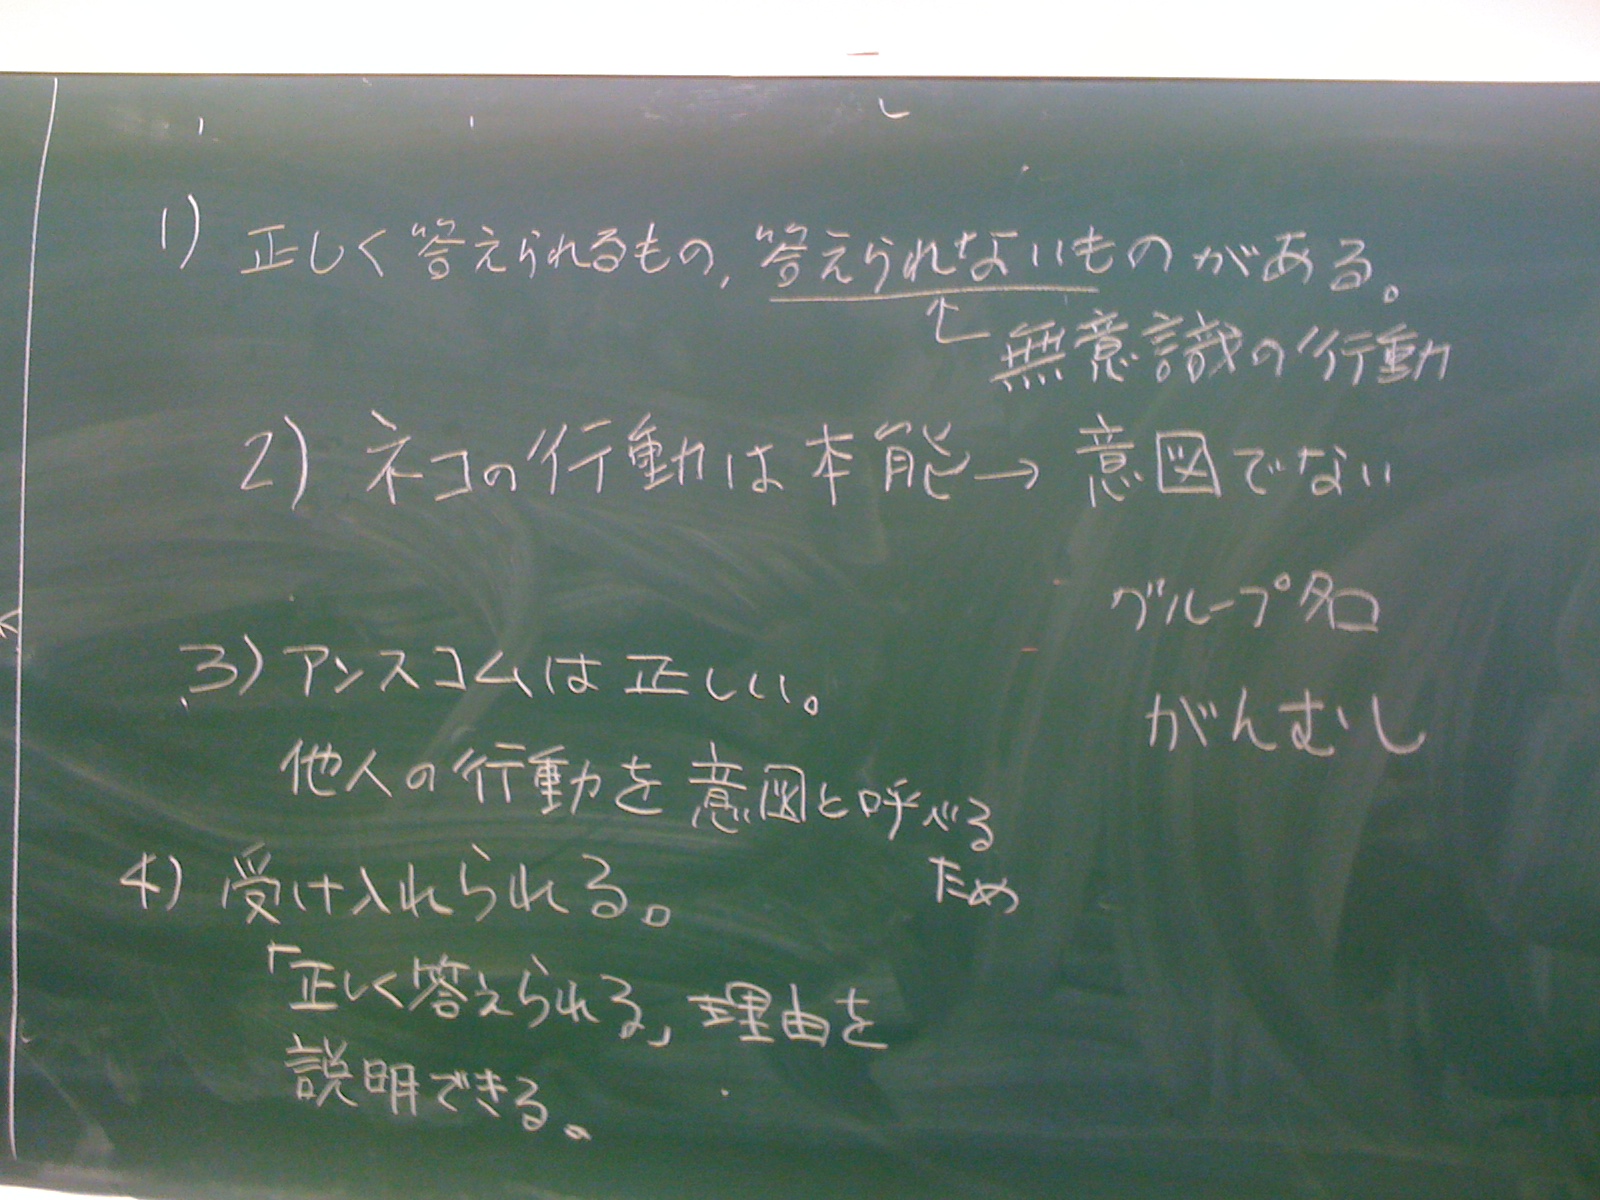 1) 正しく答えられるもの, 答えられないものがある。
無意識の行動
2) ネコの行動は本能→意図でない
グループ名
がんむし
3) アンスコムは正しい。
他人の行動を意図と呼べる
ため
4) 受け入れられる。
「正しく答えられる」理由を
説明できる。